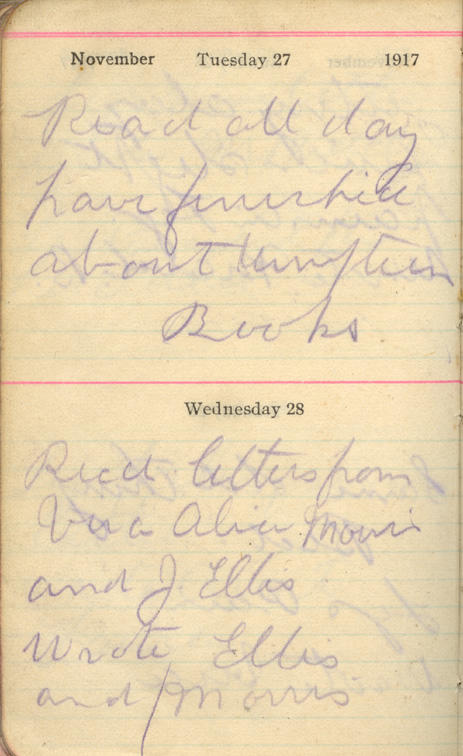 November Tuesday 27 1917
Read all day
have finished
about Umpteen
Books
Wednesday 28
Recd letters from
Vera Alice Morris
and J Ellis
Wrote Ellis
and Morris